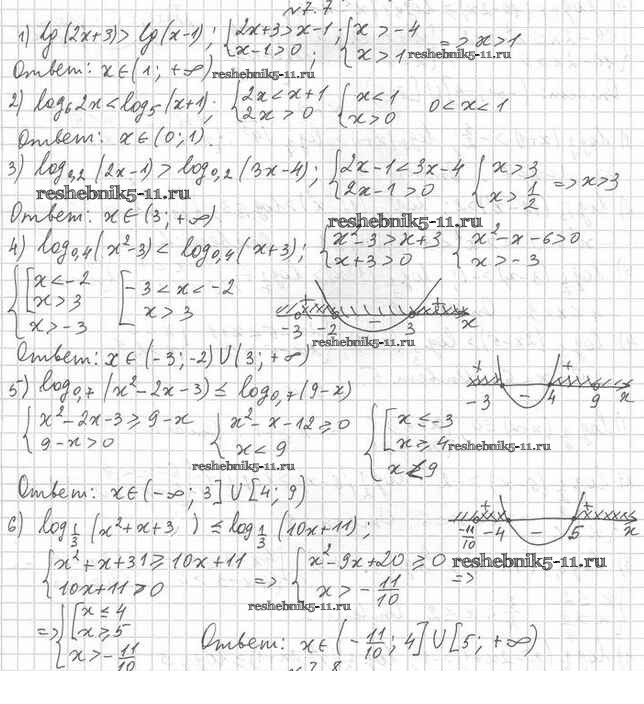 №7.7
1) lg(2x+3) > lg(x-1); { 2x+3 > x-1; x-1 > 0; { x > -4 x > 1 => x > 1
reshebnik5-11.ru
Ответ: x∈(1; +∞)
reshebnik5-11.ru
2) log₆2x < log₅(x+1); { 2x < x+1 2x > 0 { x < 1 x > 0 0 < x < 1
Ответ: x∈(0; 1).
3) log₀,₂(2x-1) > log₀,₂(3x-4); { 2x-1 < 3x-4 2x-1 > 0 { x > 3 x > 1/2 => x > 3
reshebnik5-11.ru
Ответ: x∈(3; +∞)
reshebnik5-11.ru
4) log₀,₄(x²-3) < log₀,₄(x+3); { x²-3 > x+3 x+3 > 0 { x²-x-6 > 0 x > -3
{ [ x < -2 x > 3 x > -3 [ -3 < x < -2 x > 3
+ - + -3 -2 3 x
reshebnik5-11.ru
Ответ: x∈(-3; -2) U (3; +∞)
5) log₀,₇(x²-2x-3) ≤ log₀,₇(9-x)
+ - + -3 4 9 x
{ x²-2x-3 ≥ 9-x 9-x > 0 { x²-x-12 ≥ 0 x < 9 { [ x ≤ -3 x ≥ 4 x < 9
reshebnik5-11.ru
reshebnik5-11.ru
Ответ: x∈(-∞; 3] U [4; 9)
6) log₁/₃(x²+x+3 ) ≤ log₁/₃(10x+11);
+ - + -11/10 -4 5 x
{ x²+x+31 ≥ 10x+11 10x+11 > 0 => { x²-9x+20 ≥ 0 x > -11/10 =>
reshebnik5-11.ru
reshebnik5-11.ru
=> { [ x ≤ 4 x ≥ 5 x > -11/10
Ответ: x∈(-11/10; 4] U [5; +∞)